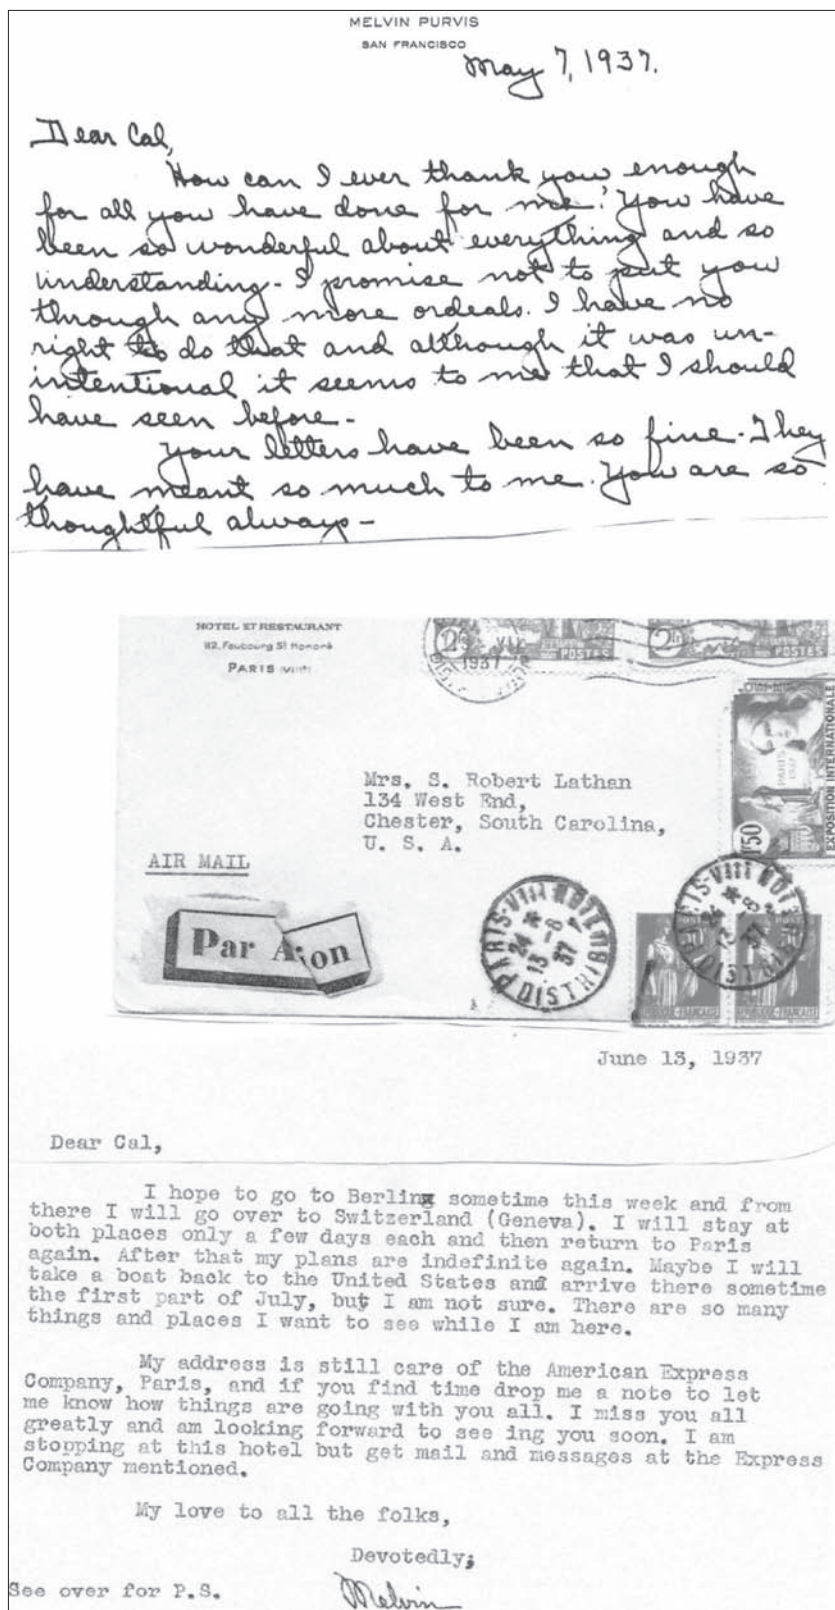 MELVIN PURVIS
SAN FRANCISCO
May 7, 1937.
Dear Cal,
How can I ever thank you enough
for all you have done for me! You have
been so wonderful about everything and so
understanding - I promise not to put you
through any more ordeals. I have no
right to do that and although it was un-
intentional it seems to me that I should
have seen before -
Your letters have been so fine. They
have meant so much to me. You are so
thoughtful always -
HOTEL ET RESTAURANT
112, Faubourg St Honoré
PARIS (VIIIe)
2fr
1937
POSTES
2fr
POSTES
Mrs. S. Robert Lathan
134 West End,
Chester, South Carolina,
U. S. A.
AIR MAIL
Par Avion
PARIS 1937
EXPOSITION INTERNATIONALE
1f50
PARIS-VIII
24
13-6
37
DISTRIB
PARIS-VIII
24
13-6
37
DISTRIB
REPUBLIQUE-FRANÇAISE
REPUBLIQUE-FRANÇAISE
June 13, 1937
Dear Cal,
I hope to go to Berling sometime this week and from
there I will go over to Switzerland (Geneva). I will stay at
both places only a few days each and then return to Paris
again. After that my plans are indefinite again. Maybe I will
take a boat back to the United States and arrive there sometime
the first part of July, but I am not sure. There are so many
things and places I want to see while I am here.
My address is still care of the American Express
Company, Paris, and if you find time drop me a note to let
me know how things are going with you all. I miss you all
greatly and am looking forward to see ing you soon. I am
stopping at this hotel but get mail and messages at the Express
Company mentioned.
My love to all the folks,
Devotedly,
See over for P.S.
Melvin